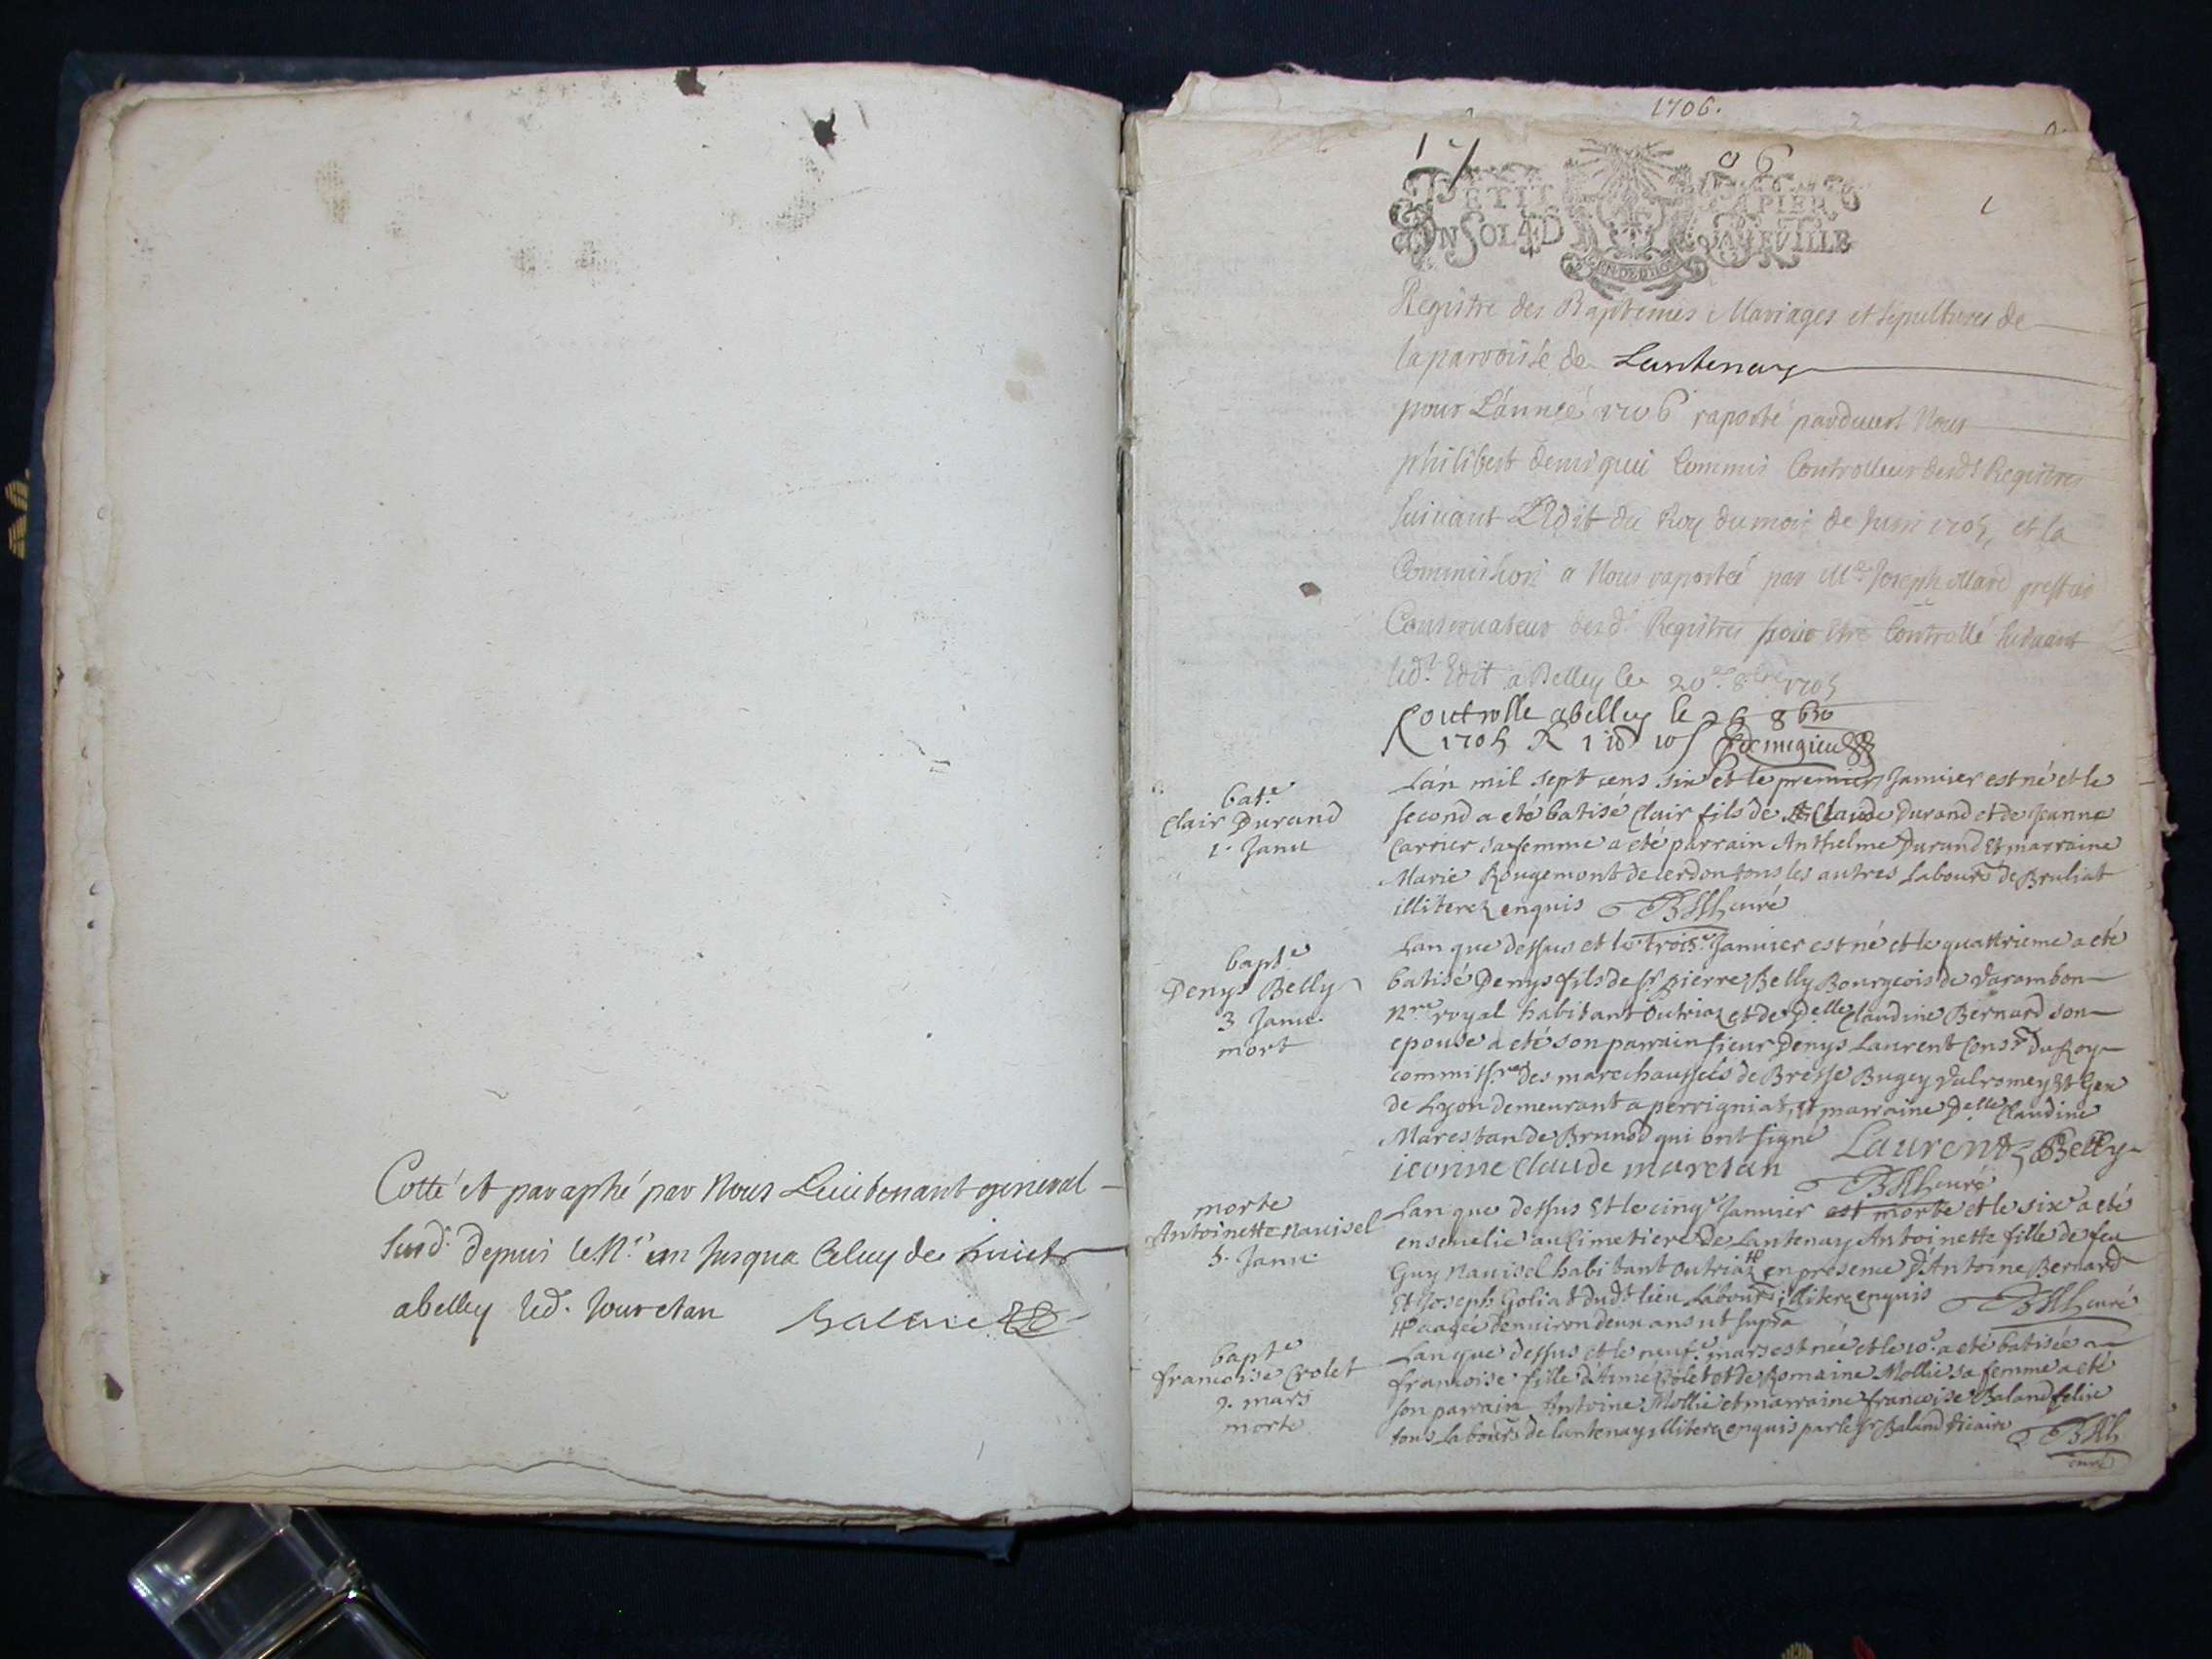 Cotté et paraphé par Nous Lieutenant general
susd. depuis le N.º un Jusqua Celuy de huict
abelley led. Jour et an
1706.
17 06
PETIT PAPIER
UN SOL 4 D LA FEVILLE
GEN DE DIION
Registre des Baptemes Mariages et sepultures de
la parroisse de Lantenay
pour L'année 1706 raporté pardevers Nous
philibert demigieu Commis Controlleur desd.s Registres
suivant L'Edit du Roy du mois de Juin 1705, et la
Commission a Nous raportée par M.e Joseph
Conservateur desd. Registres pour être Controllé suivant
led.t Edit a Belley le 20.e 8bre 1705
Controlle abelley le 26 8bre
1705 R 1 10 Demigieu
bat.e
Clair Durand
1. Janu
L'an mil sept cens six et le premier Janvier est né et le
second a eté batisé Clair fils de Claude Durand et de Jeanne
Carrier sa femme a eté parrain Anthelme Durand Et marraine
Marie Rougemont de cerdon tous les autres Labour.s de Bruliat
illiterez enquis curé
bapt.e
Denys Belly
3 Janv.
mort
Lan que dessus et le trois.e Janvier est né et le quattrieme a eté
batisé Denys fils de s.r pierre Belly Bourgeois de Varambon
n.re royal habitant Outriaz et de D.elle Claudine Bernard son
epouse a eté son parrain sieur Denys Laurent Cons.r du Roy
commiss.re des marechaussées de Bresse Bugey Valromey Et Gex
de Lyon demeurant a perrigniat, Et marraine D.elle Claudine
Marestan de Brunod qui ont signé Laurent Belly
ieonne claude marestan curé
morte
Antoinette Navisel
5. Janv.
Lan que dessus Et le cinq.e Janvier est morte et le six.e a eté
ensevelie au Cimetiere de Lantenay Antoinette fille de feu
Guy Navisel habitant Outriaz # en presence d'Antoine Bernard
Et Joseph Goliat dud.t lieu Labour.s illiterez enquis curé
# aagée denviron deux ans ut supra
bapt.e
francoise Crolet
9. mars
morte
Lan que dessus et le neuf.e mars est née et le 10.e a eté batisée
francoise fille d'Aimé Crolet et de Romaine Mollie sa femme a eté
son parrain Antoine Mollie et marraine francoise Baland
tous Labour.s de lantenay illiterez enquis par le s.r Baland vicaire
curé